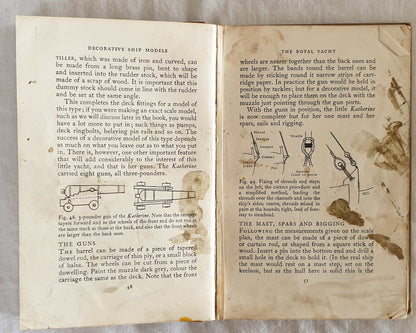 DECORATIVE SHIP MODELS
TILLER, which was made of iron and curved, can
be made from a long brass pin, bent to shape
and inserted into the rudder stock, which will be
made of a scrap of wood. It is important that this
dummy stock should come in line with the rudder
and be set at the same angle.
This completes the deck fittings for a model of
this type; if you were making an exact scale model,
such as we will discuss later in the book, you would
have a lot more to put in; such things as pumps,
deck ringbolts, belaying pin rails and so on. The
success of a decorative model of this type depends
as much on what you leave out as to what you put
in. There is, however, one other important feature
that will add considerably to the interest of this
little yacht, and that is her guns. The Katherine
carried eight guns, all three-pounders.
Fig. 48. 3-pounder gun of the Katherine. Note that the carriage
tapers forward and so the wheels of the front end do not run in
the same track as those at the back, and also that the front wheels
are larger than the back ones.
THE GUNS
THE barrel can be made of a piece of tapered
dowel rod, the carriage of thin ply, or a small block
of balsa. The wheels can be cut from a piece of
dowelling. Paint the muzzle dark grey, colour the
carriage the same as the deck. Note that the front
48
THE ROYAL YACHT
wheels are nearer together than the back ones and
are larger. The bands round the barrel can be
made by sticking round it narrow strips of cart-
ridge paper. In practice the guns would be held in
position by tackles; but for a decorative model, it
will be enough to place them on the deck with the
muzzle just pointing through the gun ports.
With the guns in position, the little Katherine
is now complete but for her one mast and her
spars, sails and rigging.
Fig. 49. Fixing of shrouds and stays
on the left, the correct procedure and
a simplified method, leading the
shrouds over the channels and into the
ship's sides. centre, shrouds seized in
pairs at the hounds; right, lead of fore-
stay to masthead.
THE MAST, SPARS AND RIGGING
FOLLOWING the measurements given on the scale
plan, the mast can be made of a piece of dowel
or curtain rod, or shaped from a square stick of
wood. Insert a pin into the bottom end and drill a
small hole in the deck to hold it. (In the real ship
the mast would run on past the deck, set on the
keelson, but as the hull here is solid this is the
51